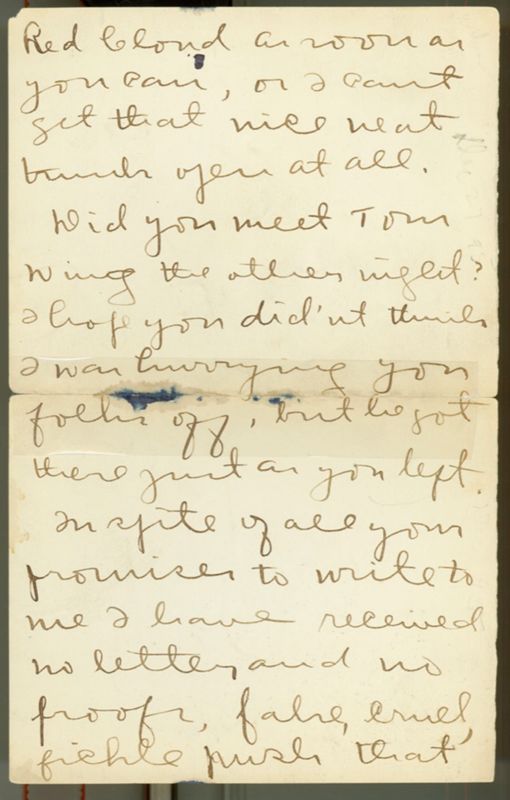 Red Cloud as soon as
you can, or I can't
get that nice neat
trunk open at all.
Did you meet Tom
Wing the other night?
I hope you did'nt think
I was hurrying you
folks off, but he got
there just as you left.
In spite of all your
promises to write to
me I have received
no letter, and no
proofs, false, cruel,
fickle push that